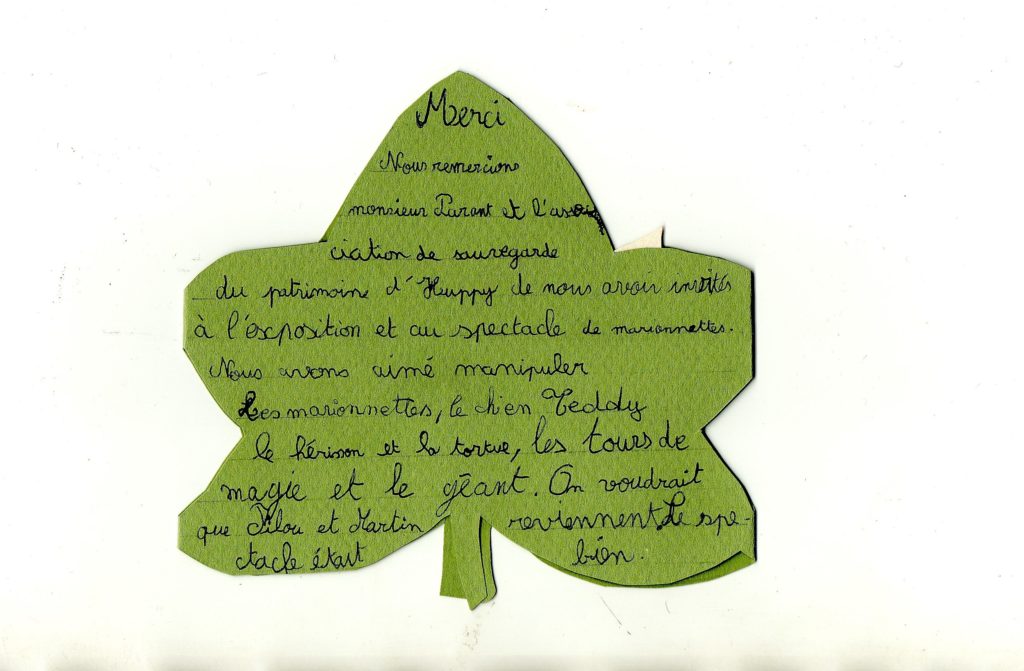 Merci
Nous remercions
monsieur Parant et l'asso
ciation de sauvegarde
du patrimoine d'Huppy de nous avoir invités
à l'exposition et au spectacle de marionnettes.
Nous avons aimé manipuler
Les marionnettes, le chien Teddy
le hérisson et la tortue, les tours de
magie et le géant. On voudrait
que Filou et Martin reviennent. Le spe-
ctacle était bien.